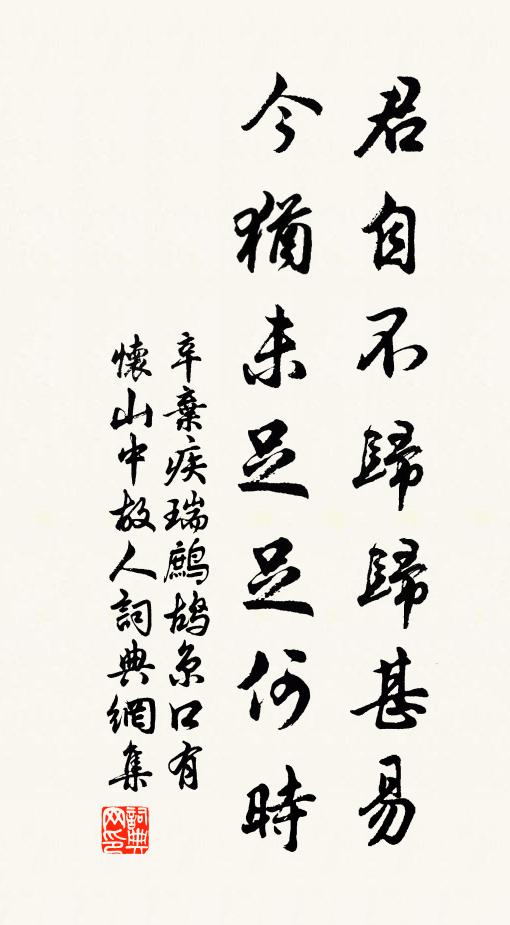 君自不歸歸甚易
今猶未足足何時
辛棄疾瑞鷓鴣京口有
懷山中故人詞典網集
詞典網印